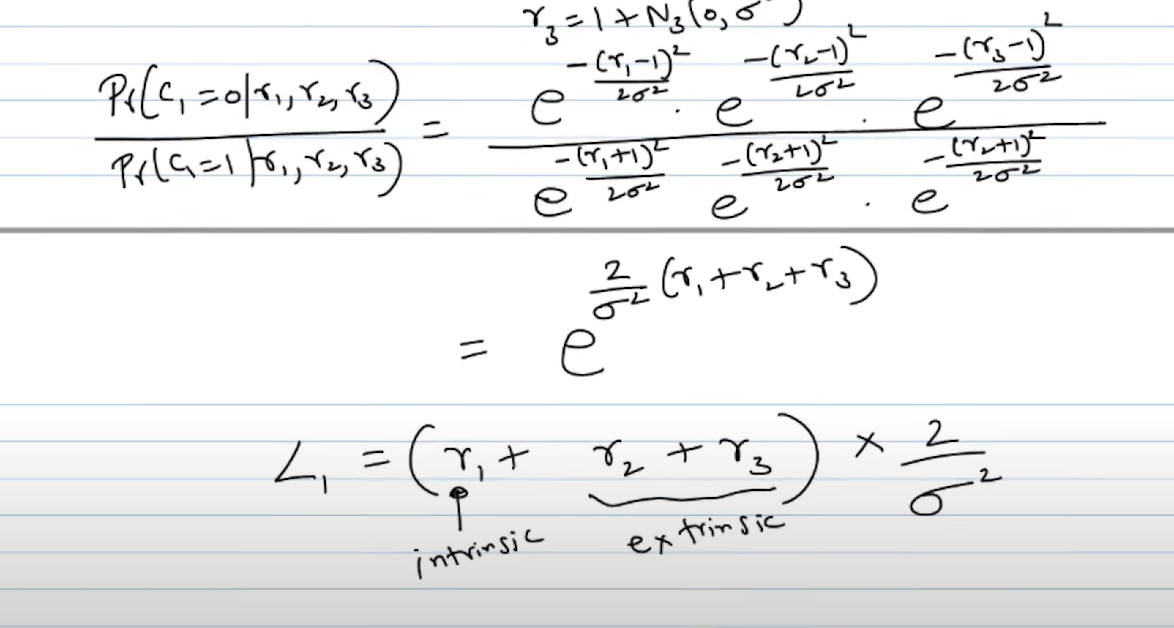 r₃ = 1 + N₃(0, σ²)
Pr(C₁=0|r₁,r₂,r₃) / Pr(C₁=1|r₁,r₂,r₃) = e^(-(r₁-1)²/2σ²) · e^(-(r₂-1)²/2σ²) · e^(-(r₃-1)²/2σ²) / e^(-(r₁+1)²/2σ²) e^(-(r₂+1)²/2σ²) · e^(-(r₂+1)²/2σ²)
= e^(2/σ² (r₁+r₂+r₃))
L₁ = (r₁ + r₂ + r₃) × 2/σ²
intrinsic extrinsic